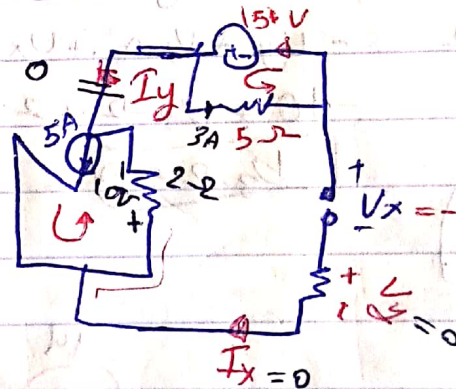 15V
+-
0
Iy
5A
3A 5Ω
10V
2Ω
+
+
Vx = -
-
+
= 0
Ix = 0